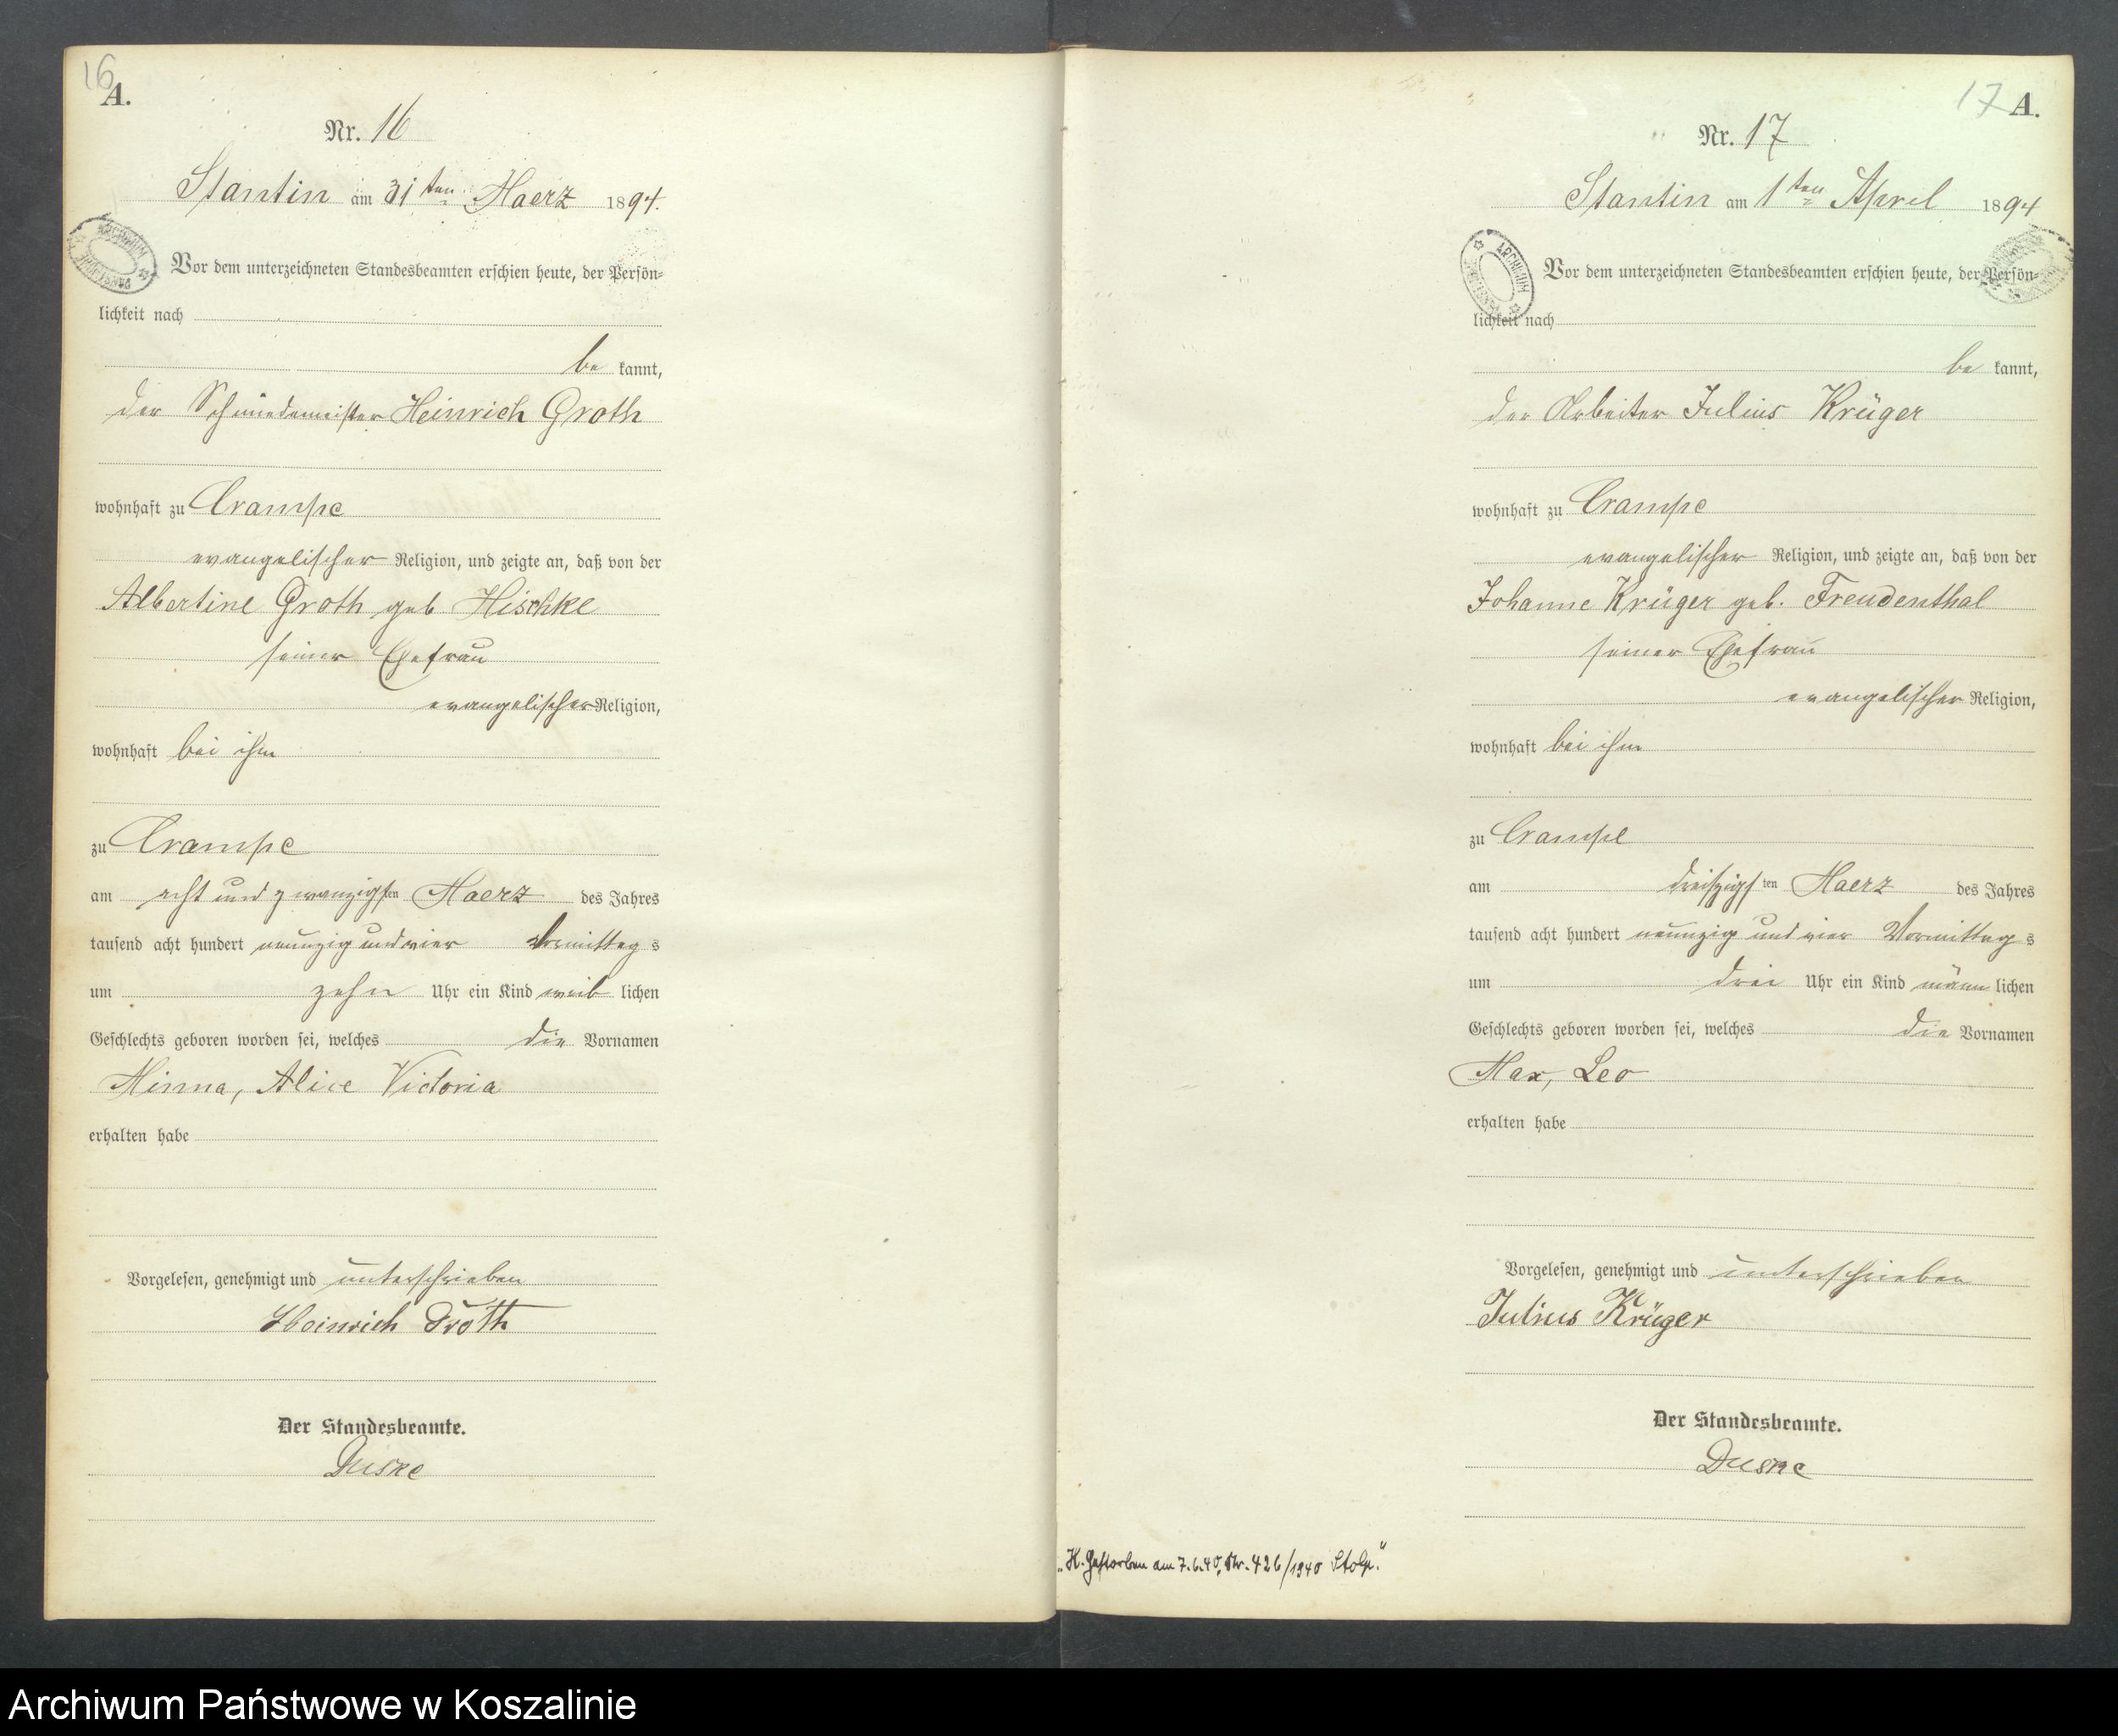 16
A.
Nr. 16
Stantin am 31ten Maerz 1894.
Vor dem unterzeichneten Standesbeamten erschien heute, der Persön=
lichkeit nach
be kannt,
der Schmiedemeister Heinrich Groth
wohnhaft zu Crampe
evangelischer Religion, und zeigte an, daß von der
Albertine Groth geb Hischke
seiner Ehefrau
evangelischer Religion,
wohnhaft bei ihm
zu Crampe
am acht und zwanzigsten Maerz des Jahres
tausend acht hundert neunzig und vier Vormittags
um zehn Uhr ein Kind weiblichen
Geschlechts geboren worden sei, welches die Vornamen
Minna, Alice Victoria
erhalten habe
Vorgelesen, genehmigt und unterschrieben
Heinrich Groth
Der Standesbeamte.
Duske
17 A.
Nr. 17
Stantin am 1ten April 1894
ARCHIWUM
Vor dem unterzeichneten Standesbeamten erschien heute, der Persön=
lichkeit nach
be kannt,
der Arbeiter Julius Krüger
wohnhaft zu Crampe
evangelischer Religion, und zeigte an, daß von der
Johanne Krüger geb. Freudenthal
seiner Ehefrau
evangelischer Religion,
wohnhaft bei ihm
zu Crampe
am dreißigsten Maerz des Jahres
tausend acht hundert neunzig und vier Vormittags
um drei Uhr ein Kind männlichen
Geschlechts geboren worden sei, welches die Vornamen
Max, Leo
erhalten habe
Vorgelesen, genehmigt und unterschrieben
Julius Krüger
Der Standesbeamte.
Duske
„K. Gestorben am 7.6.40, Nr. 426/1940 Stolp."
Archiwum Państwowe w Koszalinie